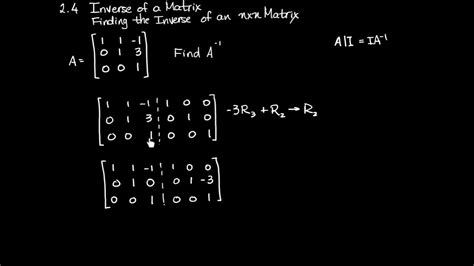 2.4 Inverse of a Matrix
Finding the Inverse of an nxn Matrix
A = [ 1 1 -1
0 1 3
0 0 1 ] Find A⁻¹ A|I = IA⁻¹
[ 1 1 -1 | 1 0 0
0 1 3 | 0 1 0
0 0 1 | 0 0 1 ] -3R₃ + R₂ → R₂
[ 1 1 -1 | 1 0 0
0 1 0 | 0 1 -3
0 0 1 | 0 0 1 ]